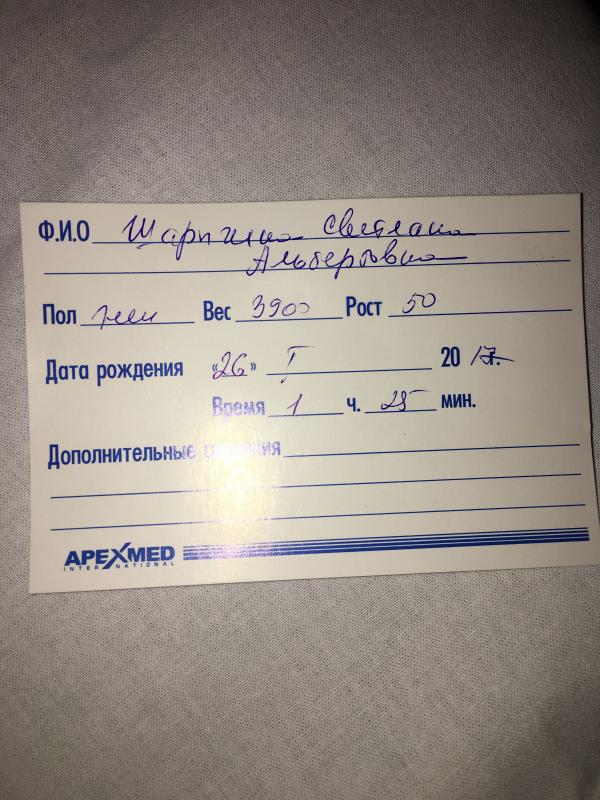 Ф.И.О Шарпгина Светлана
Альбертовна
Пол жен Вес 3900 Рост 50
Дата рождения «26» I 2017г.
Время 1 ч. 25 мин.
Дополнительные сведения
APEXMED
INTERNATIONAL